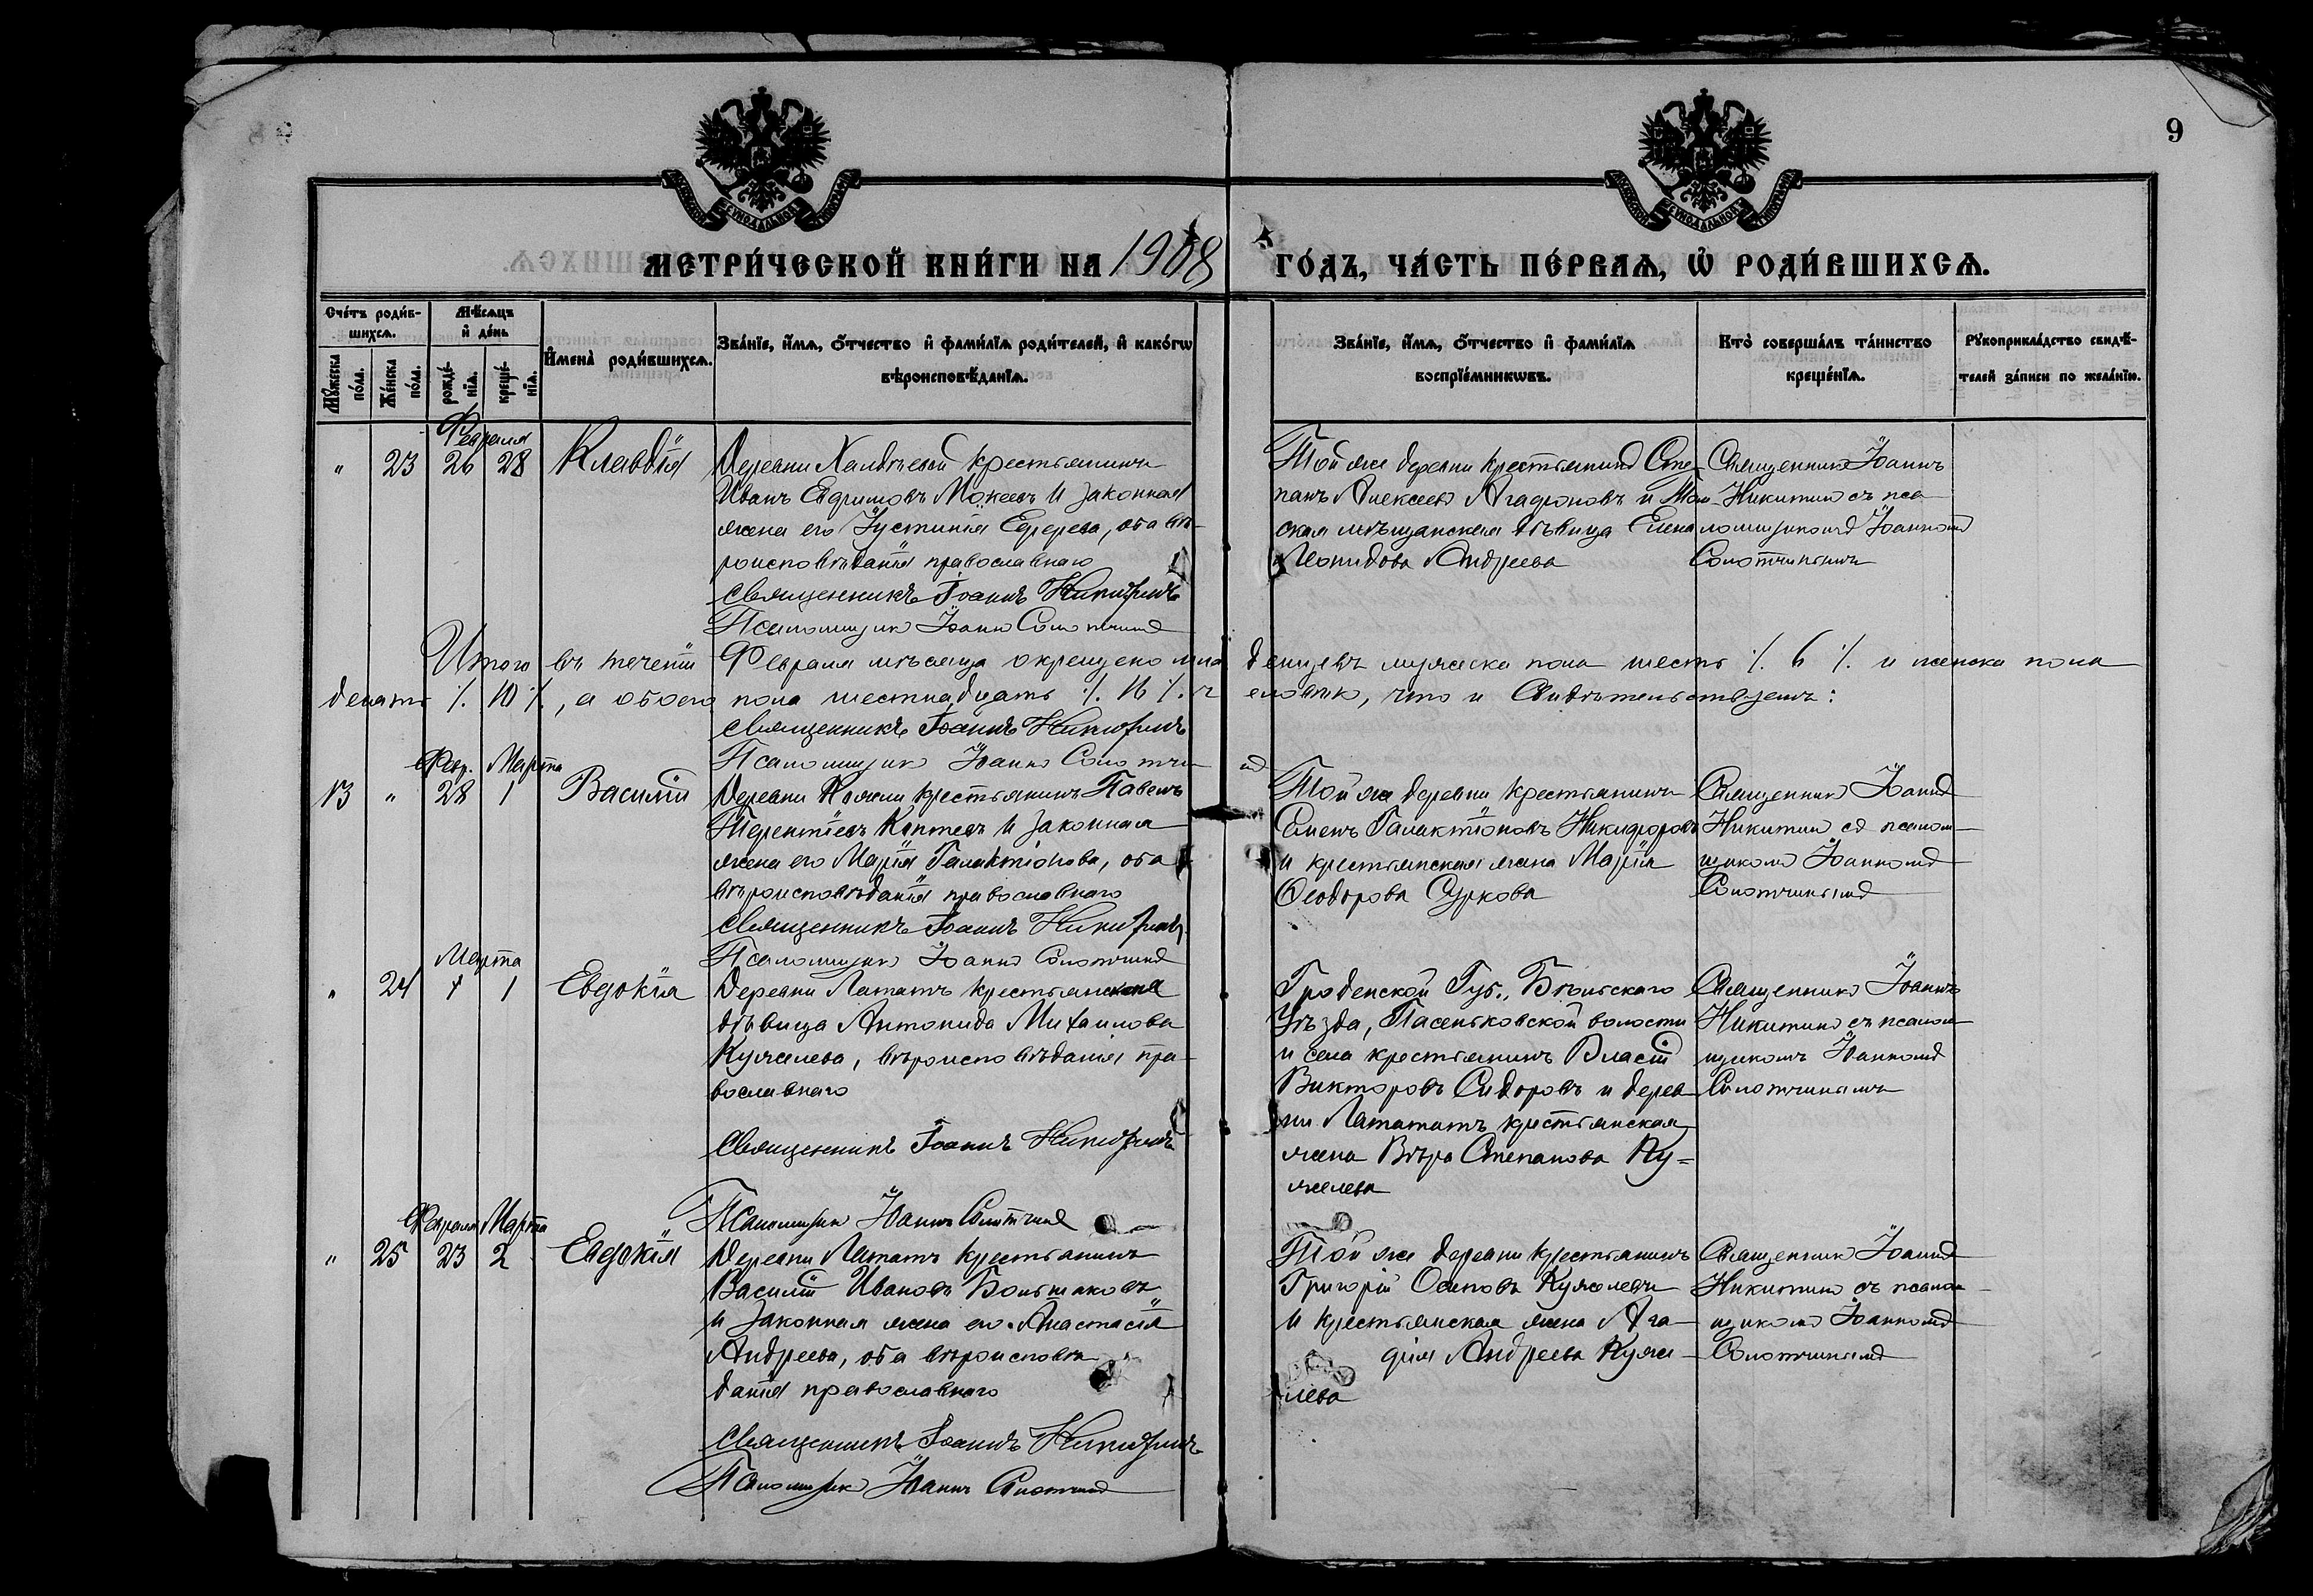 9
МЕТРИ́ЧЕСКОЙ КНИ́ГИ НА 1908 ГО́ДЪ, ЧА́СТЬ ПЕ́РВАѦ, Ѡ҆ РОДИ́ВШИХСѦ.
Сче́тъ роди́в-
шихсѧ.
Мꙋ́жеска по́ла.
Же́нска по́ла.
Мѣ́сѧцъ
и҆ де́нь
рожде́-
нїѧ.
креще́-
нїѧ.
И҆мена̀ роди́вшихсѧ.
Зва́нїе, и҆́мѧ, ѻ҆́тчество и҆ фами́лїѧ роди́телей, и҆ како́гѡ
вѣроисповѣ́данїѧ.
Зва́нїе, и҆́мѧ, ѻ҆́тчество и҆ фами́лїѧ
воспрїе́мникѡвъ.
Кто̀ соверша́лъ та́инство
креще́нїѧ.
Рꙋкоприкла́дство свидѣ́-
телей за́писи по жела́нїю.
Февраля
" 23 26 28 Клавдія
Деревни Халдѣевой крестьянинъ
Иванъ Евфимовъ Мокеевъ и законная
жена его Іустинія Ефрева, оба вѣ-
роисповѣданія православнаго
Священникъ Іоаннъ Никитинъ
Псаломщикъ Іоаннъ Солотчинъ
Той же деревни крестьянинъ Сте-
панъ Алексеевъ Агафоновъ и Том-
ская мѣщанская дѣвица Елена
Леонидова Андреева
Священникъ Іоаннъ
Никитинъ съ пса-
ломщикомъ Іоанномъ
Солотчинымъ
Итого въ теченіи Февраля мѣсяца окрещено мла денцевъ мужеска пола шесть ./. 6 ./. и женска пола
десять ./. 10 ./., а обоего пола шестнадцать ./. 16 ./. ч еловѣкъ, что и Свидѣтельствуемъ:
Священникъ Іоаннъ Никитинъ
Псаломщикъ Іоаннъ Солотчи нъ
Февр. Марта
13 " 28 1 Василій
Деревни Кожли крестьянинъ Павелъ
Терентіевъ Коптевъ и законная
жена его Марія Галактіонова, оба
вѣроисповѣданія православнаго
Священникъ Іоаннъ Никитинъ
Псаломщикъ Іоаннъ Солотчинъ
Той же деревни крестьянинъ
Семенъ Галактіоновъ Никифоровъ
и крестьянская жена Марія
Ѳеодорова Суркова
Священникъ Іоаннъ
Никитинъ съ псалом-
щикомъ Іоанномъ
Солотчинымъ
Марта
" 24 1 1 Евдокія
Деревни Лататъ крестьянская
дѣвица Антонида Михаилова
Кужелева, вѣроисповѣданія пра-
вославнаго
Священникъ Іоаннъ Никитинъ
Псаломщикъ Іоаннъ Солотчинъ
Гроденской Губ., Бѣльскаго
Уѣзда, Пасеньковской волости
и села крестьянинъ Власій
Викторовъ Сидоровъ и дерев-
ни Лататъ крестьянская
жена Вѣра Степанова Ку-
желева
Священникъ Іоаннъ
Никитинъ съ псалом-
щикомъ Іоанномъ
Солотчинымъ
Февраля Марта
" 25 23 2 Евдокія
Деревни Лататъ крестьянинъ
Василій Ивановъ Большаковъ
и законная жена его Анастасія
Андреева, оба вѣроисповѣ-
данія православнаго
Священникъ Іоаннъ Никитинъ
Псаломщикъ Іоаннъ Солотчинъ
Той же деревни крестьянинъ
Григорій Осиповъ Кужелевъ
и крестьянская жена Ага-
фія Андреева Куже-
лева
Священникъ Іоаннъ
Никитинъ съ псалом-
щикомъ Іоанномъ
Солотчинымъ